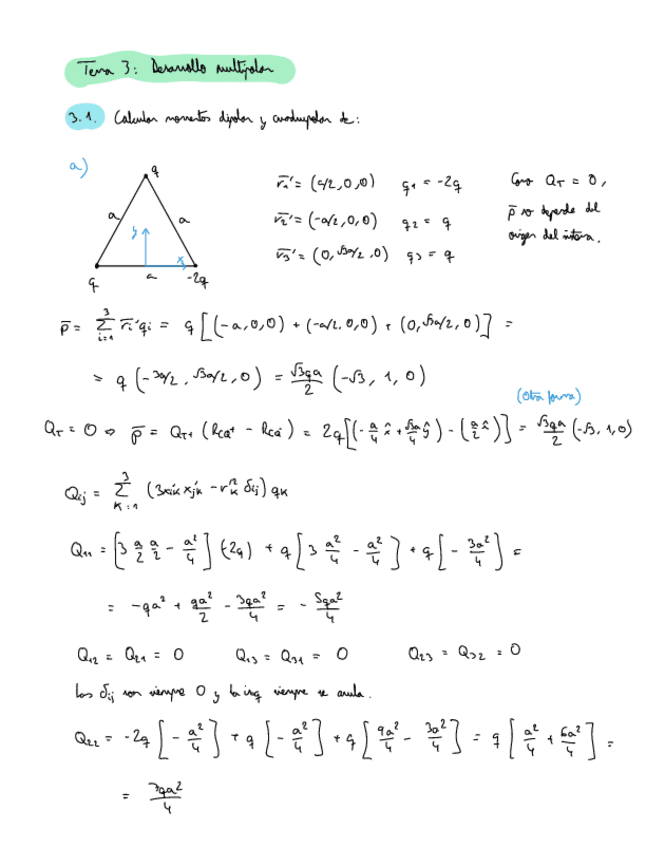 Tema 3: Desarrollo multipolar
3.1. Calcular momentos dipolar y cuadrupolar de:
a)
q
a
a
y
x
q
a
-2q
r̄₁' = (a/2, 0, 0) q₁ = -2q
r̄₂' = (-a/2, 0, 0) q₂ = q
r̄₃' = (0, √3a/2, 0) q₃ = q
Como Q_T = 0,
p̄ no depende del
origen del sistema.
p̄ = Σ_{i=1}^{3} r̄ᵢ' qᵢ = q [(-a, 0, 0) + (-a/2, 0, 0) + (0, √3a/2, 0)] =
= q (-3a/2, √3a/2, 0) = √3qa/2 (-√3, 1, 0)
(Otra forma)
Q_T = 0 ⇒ p̄ = Q_{T+} (R_{CQ+} - R_{CQ-}) = 2q[(-a/4 x̂ + √3a/4 ŷ) - (a/2 x̂)] = √3qa/2 (-√3, 1, 0)
Q_ij = Σ_{k=1}^{3} (3x_ik x_jk - r_k² δ_ij) q_k
Q₁₁ = [3 a/2 a/2 - a²/4] (-2q) + q [3 a²/4 - a²/4] + q [- 3a²/4] =
= -qa² + qa²/2 - 3qa²/4 = - 5qa²/4
Q₁₂ = Q₂₁ = 0 Q₁₃ = Q₃₁ = 0 Q₂₃ = Q₃₂ = 0
Los δ_ij son siempre 0 y la izq siempre se anula.
Q₂₂ = -2q [- a²/4] + q [- a²/4] + q [9a²/4 - 3a²/4] = q [a²/4 + 6a²/4] =
= 7qa²/4